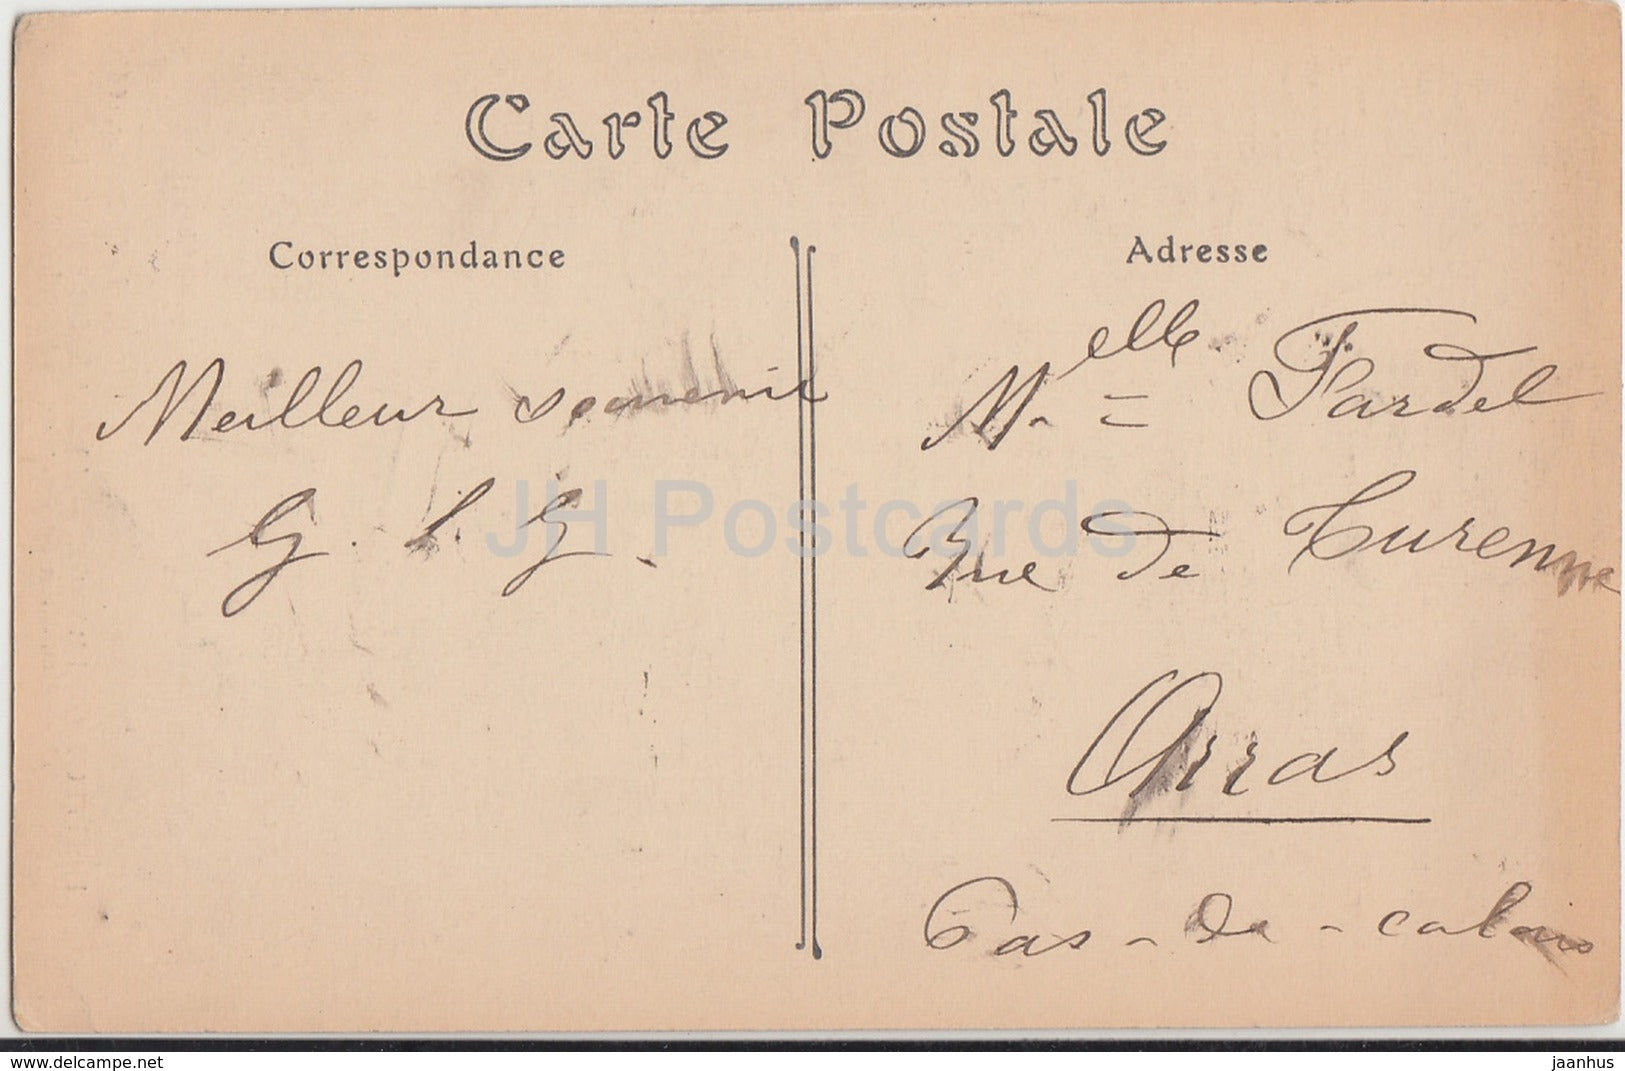 Carte Postale
Correspondance
Meilleur souvenir
G. L. G.
Adresse
Melle. = Fardel
Rue de Turenne
Arras
Pas-de-calais
JH Postcards
delcampe.net
jaanhus